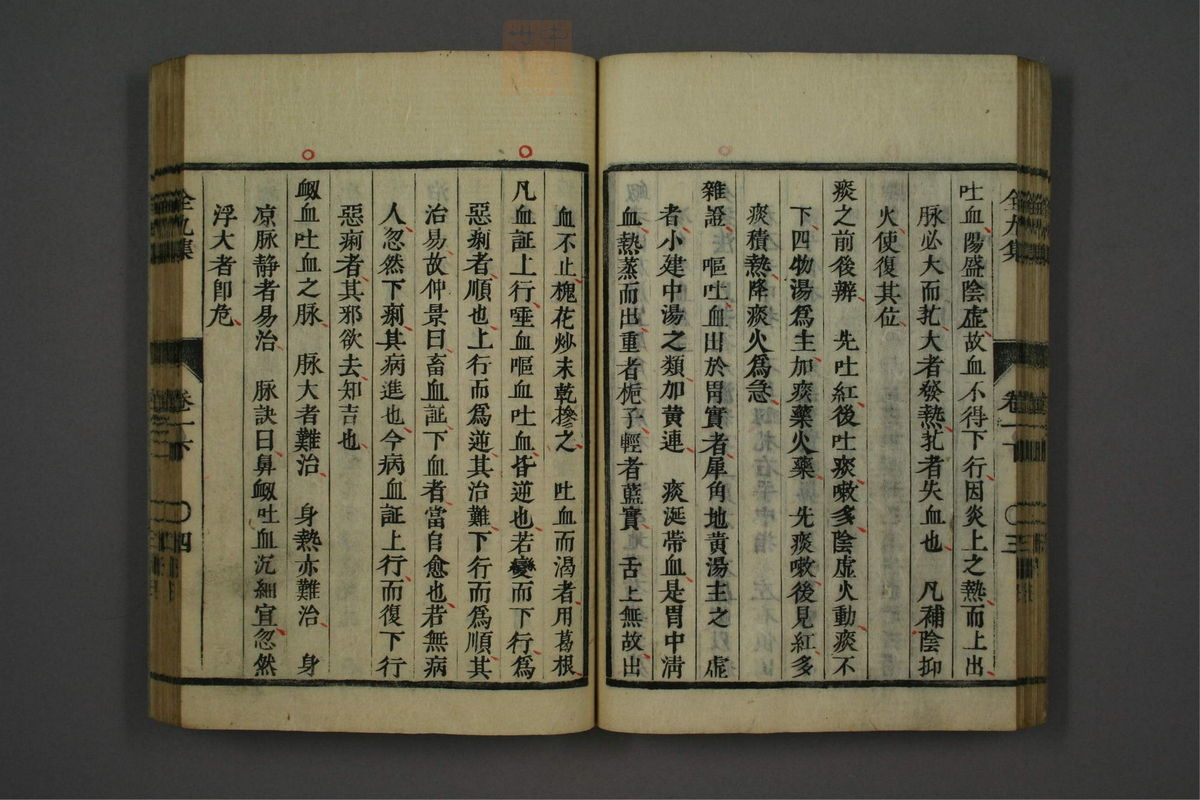 吐血陽盛陰虛故血不得下行因炎上之熱而上出
脉必大而芤大者發熱芤者失血也　凡補陰抑
火使復其位
痰之前後辨　先吐紅後吐痰嗽多陰虛火動痰不
下四物湯爲主加痰藥火藥　先痰嗽後見紅多
痰積熱降痰火爲急
雜證　嘔吐血出於胃實者犀角地黄湯主之　虛
者小建中湯之類加黄連　痰涎帶血是胃中淸
血熱蒸而出重者梔子輕者藍實　舌上無故出
血不止槐花炒末乾摻之　吐血而渴者用葛根
凡血証上行唾血嘔血吐血皆逆也若變而下行爲
惡痢者順也上行而爲逆其治難下行而爲順其
治易故仲景曰畜血証下血者當自愈也若無病
人忽然下痢其病進也今病血証上行而復下行
惡痢者其邪欲去知吉也
衂血吐血之脉　脉大者難治　身熱亦難治　身
凉脉静者易治　脉訣曰鼻衂吐血沉細宜忽然
浮大者卽危
全九集
卷一下
三
全九集
卷一下
四